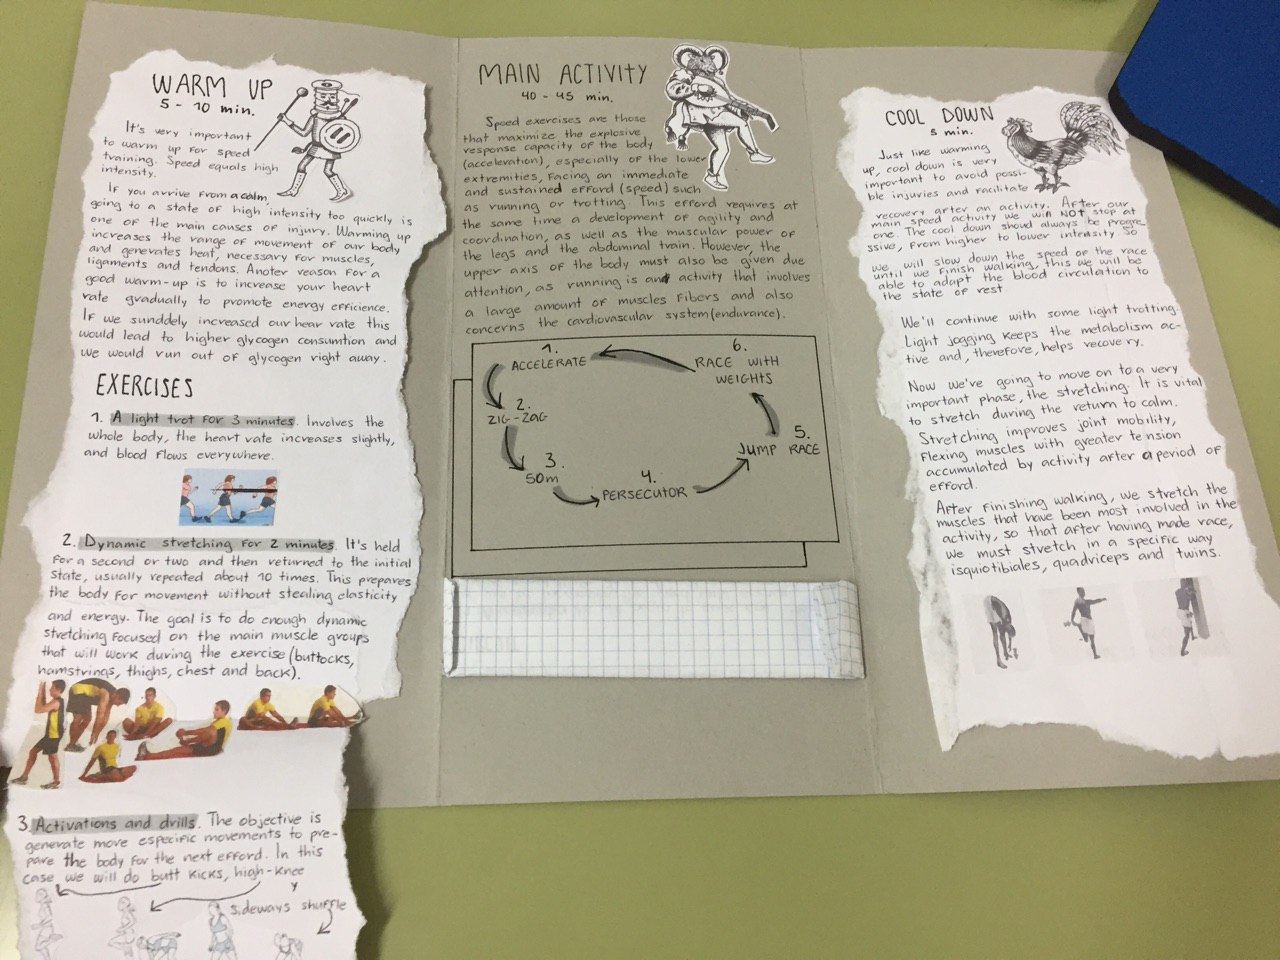 WARM UP
5 - 10 min.
It's very important
to warm up for speed
training. Speed equals high
intensity.
If you arrive from a calm,
going to a state of high intensity too quickly is
one of the main causes of injury. Warming up
increases the range of movement of our body
and generates heat, necessary for muscles,
ligaments and tendons. Anoter reason for a
good warm-up is to increase your heart
rate gradually to promote energy efficience.
If we sunddely increased our hear rate this
would lead to higher glycogen consumtion and
we would run out of glycogen right away.
EXERCISES
1. A light trot for 3 minutes. Involves the
whole body, the heart rate increases slightly,
and blood flows everywhere.
2. Dynamic stretching for 2 minutes. It's held
for a second or two and then returned to the initial
state, usually repeated about 10 times. This prepares
the body for movement without stealing elasticity
and energy. The goal is to do enough dynamic
stretching focused on the main muscle groups
that will work during the exercise (buttocks,
hamstrings, thighs, chest and back).
3. Activations and drills. The objective is
generate more especific movements to pre-
pare the body for the next efford. In this
case we will do butt kicks, high-knee
y
sideways shuffle
MAIN ACTIVITY
40 - 45 min.
Speed exercises are those
that maximize the explosive
response capacity of the body
(acceleration), especially of the lower
extremities, facing an immediate
and sustained efford (speed) such
as running or trotting. This efford requires at
the same time a development of agility and
coordination, as well as the muscular power of
the legs and the abdominal train. However, the
upper axis of the body must also be given due
attention, as running is an activity that involves
a large amount of muscles fibers and also
concerns the cardiovascular system (endurance).
1.
ACCELERATE
2.
ZIG-ZAG
3.
50m
4.
PERSECUTOR
5.
JUMP RACE
6.
RACE WITH
WEIGHTS
COOL DOWN
5 min.
Just like warming
up, cool down is very
important to avoid possi-
ble injuries and facilitate
recovery after an activity. After our
main speed activity we will NOT stop at
one. The cool down shoud always be progre
ssive, from higher to lower intensity so
we will slow down the speed of the race
until we finish walking, this we will be
able to adapt the blood circulation to
the state of rest.
We'll continue with some light trotting.
Light jogging keeps the metabolism ac-
tive and, therefore, helps recovery.
Now we've going to move on to a very
important phase, the stretching. It is vital
to stretch during the return to calm.
Stretching improves joint mobility,
flexing muscles with greater tension
accumulated by activity after a period of
efford.
After finishing walking, we stretch the
muscles that have been most involved in the
activity, so that after having made race,
we must stretch in a specific way
isquiotibiales, quadriceps and twins.